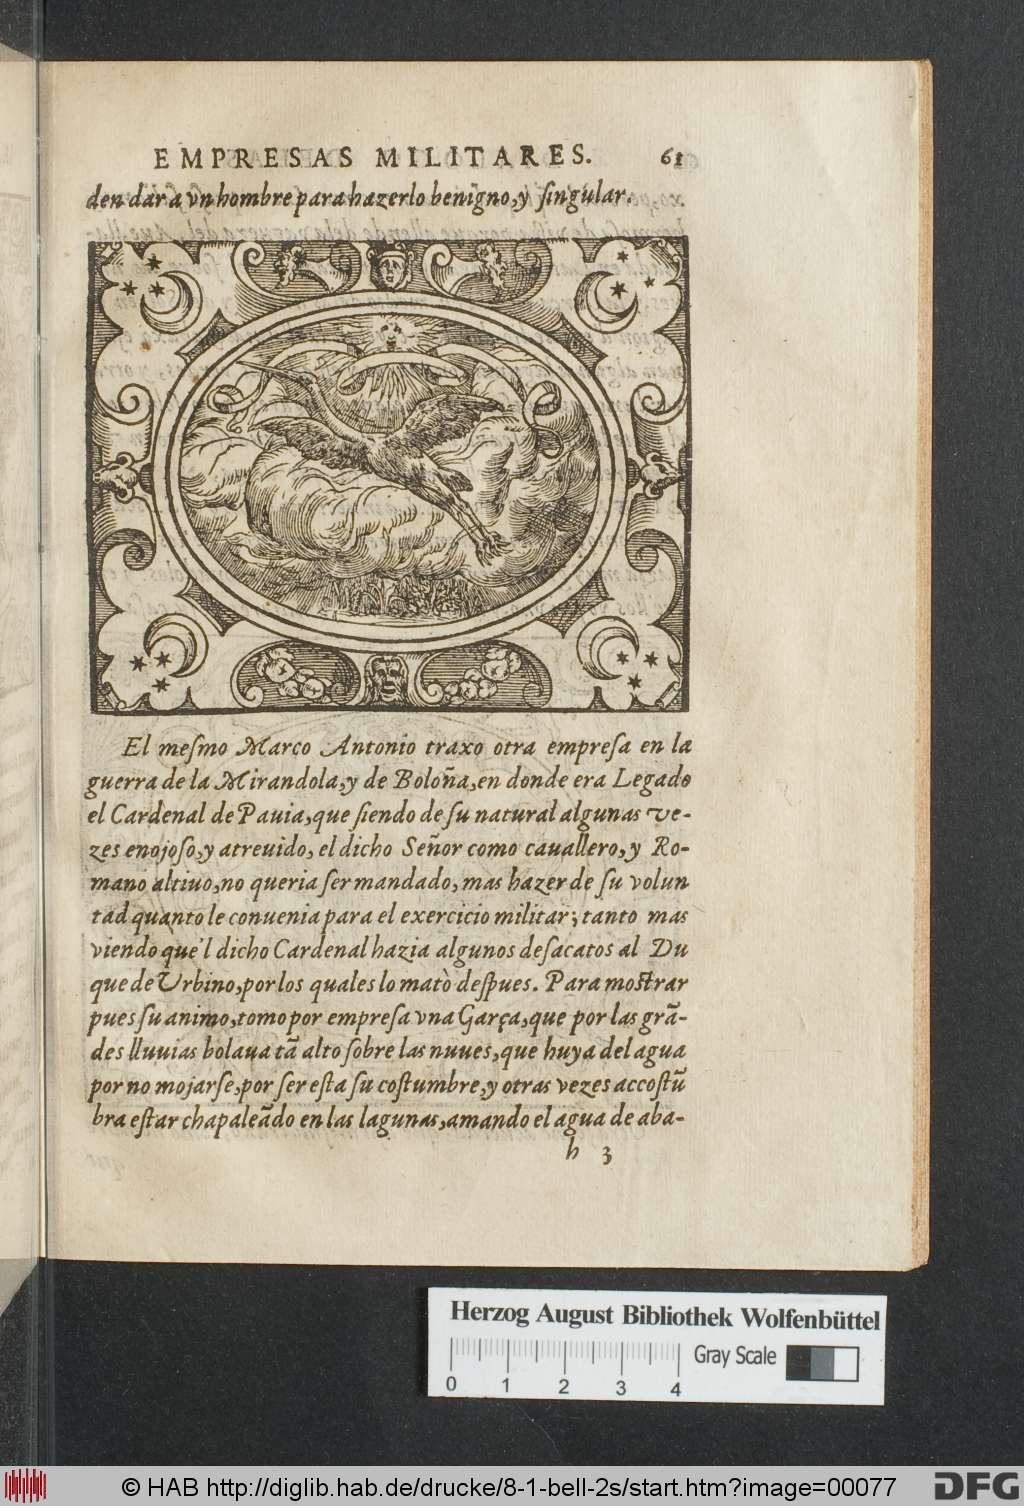 EMPRESAS MILITARES. 61
den dar a vn hombre para hazerlo benigno, y ſingular.
El meſmo Marco Antonio traxo otra empreſa en la
guerra de la Mirandola, y de Boloña, en donde era Legado
el Cardenal de Pauia, que ſiendo de ſu natural algunas ve-
zes enojoſo, y atreuido, el dicho Señor como cauallero, y Ro-
mano altiuo, no queria ſer mandado, mas hazer de ſu volun
tad quanto le conuenia para el exercicio militar; tanto mas
viendo que'l dicho Cardenal hazia algunos deſacatos al Du
que de Vrbino, por los quales lo matò deſpues. Para moſtrar
pues ſu animo, tomo por empreſa vna Garça, que por las grã-
des lluuias bolaua tã alto ſobre las nuues, que huya del agua
por no mojarſe, por ſer eſta ſu coſtumbre, y otras vezes accoſtũ
bra eſtar chapaleãdo en las lagunas, amando el agua de aba-
h 3
Herzog August Bibliothek Wolfenbüttel
Gray Scale
0 1 2 3 4
© HAB http://diglib.hab.de/drucke/8-1-bell-2s/start.htm?image=00077
DFG